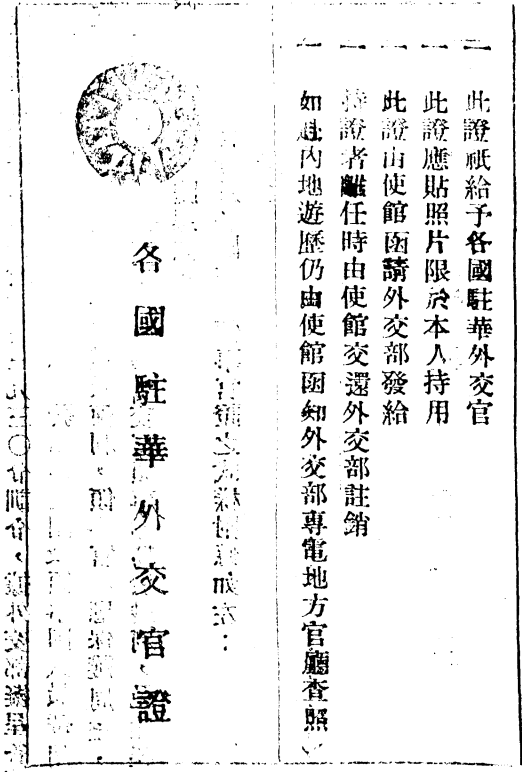 一 此證祇給予各國駐華外交官
一 此證應貼照片限於本人持用
一 此證由使館函請外交部發給
一 持證者離任時由使館交還外交部註銷
一 如赴內地遊歷仍由使館函知外交部專電地方官廳查照
各國駐華外交官證